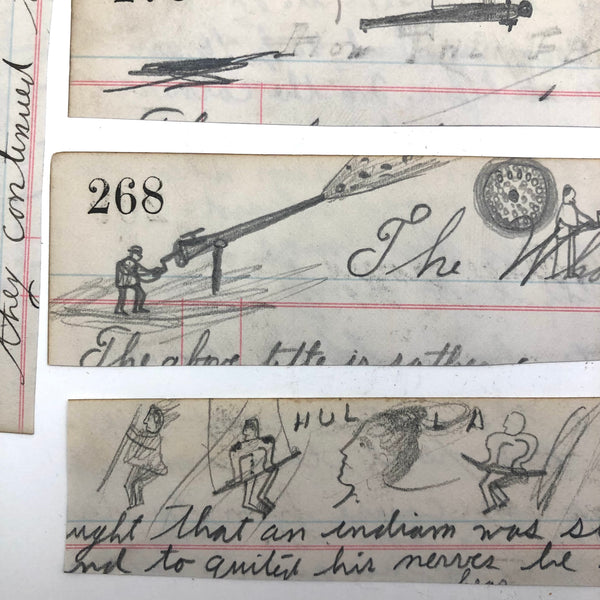 they continued
How The F
268
The Who
The above title is rather
HUL LA
ught that an indian was s
nd to quited his nerves he